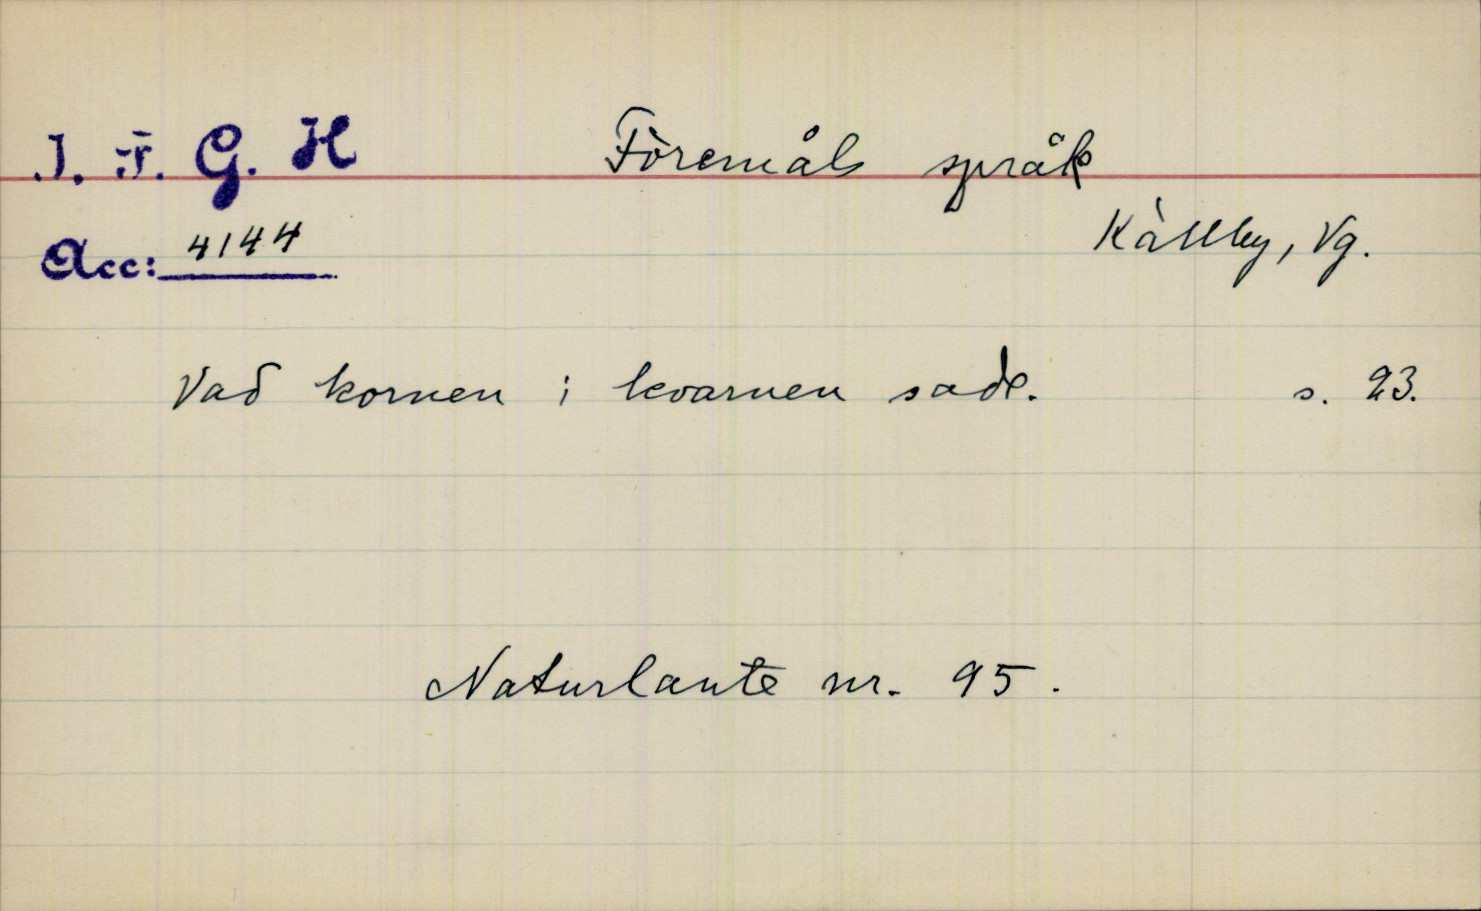 I. F. G. H
Föremåls språk
Acc: 4144
Källby, Vg.
Vad kornen i kvarnen sade. s. 23.
Naturlaute nr. 95.